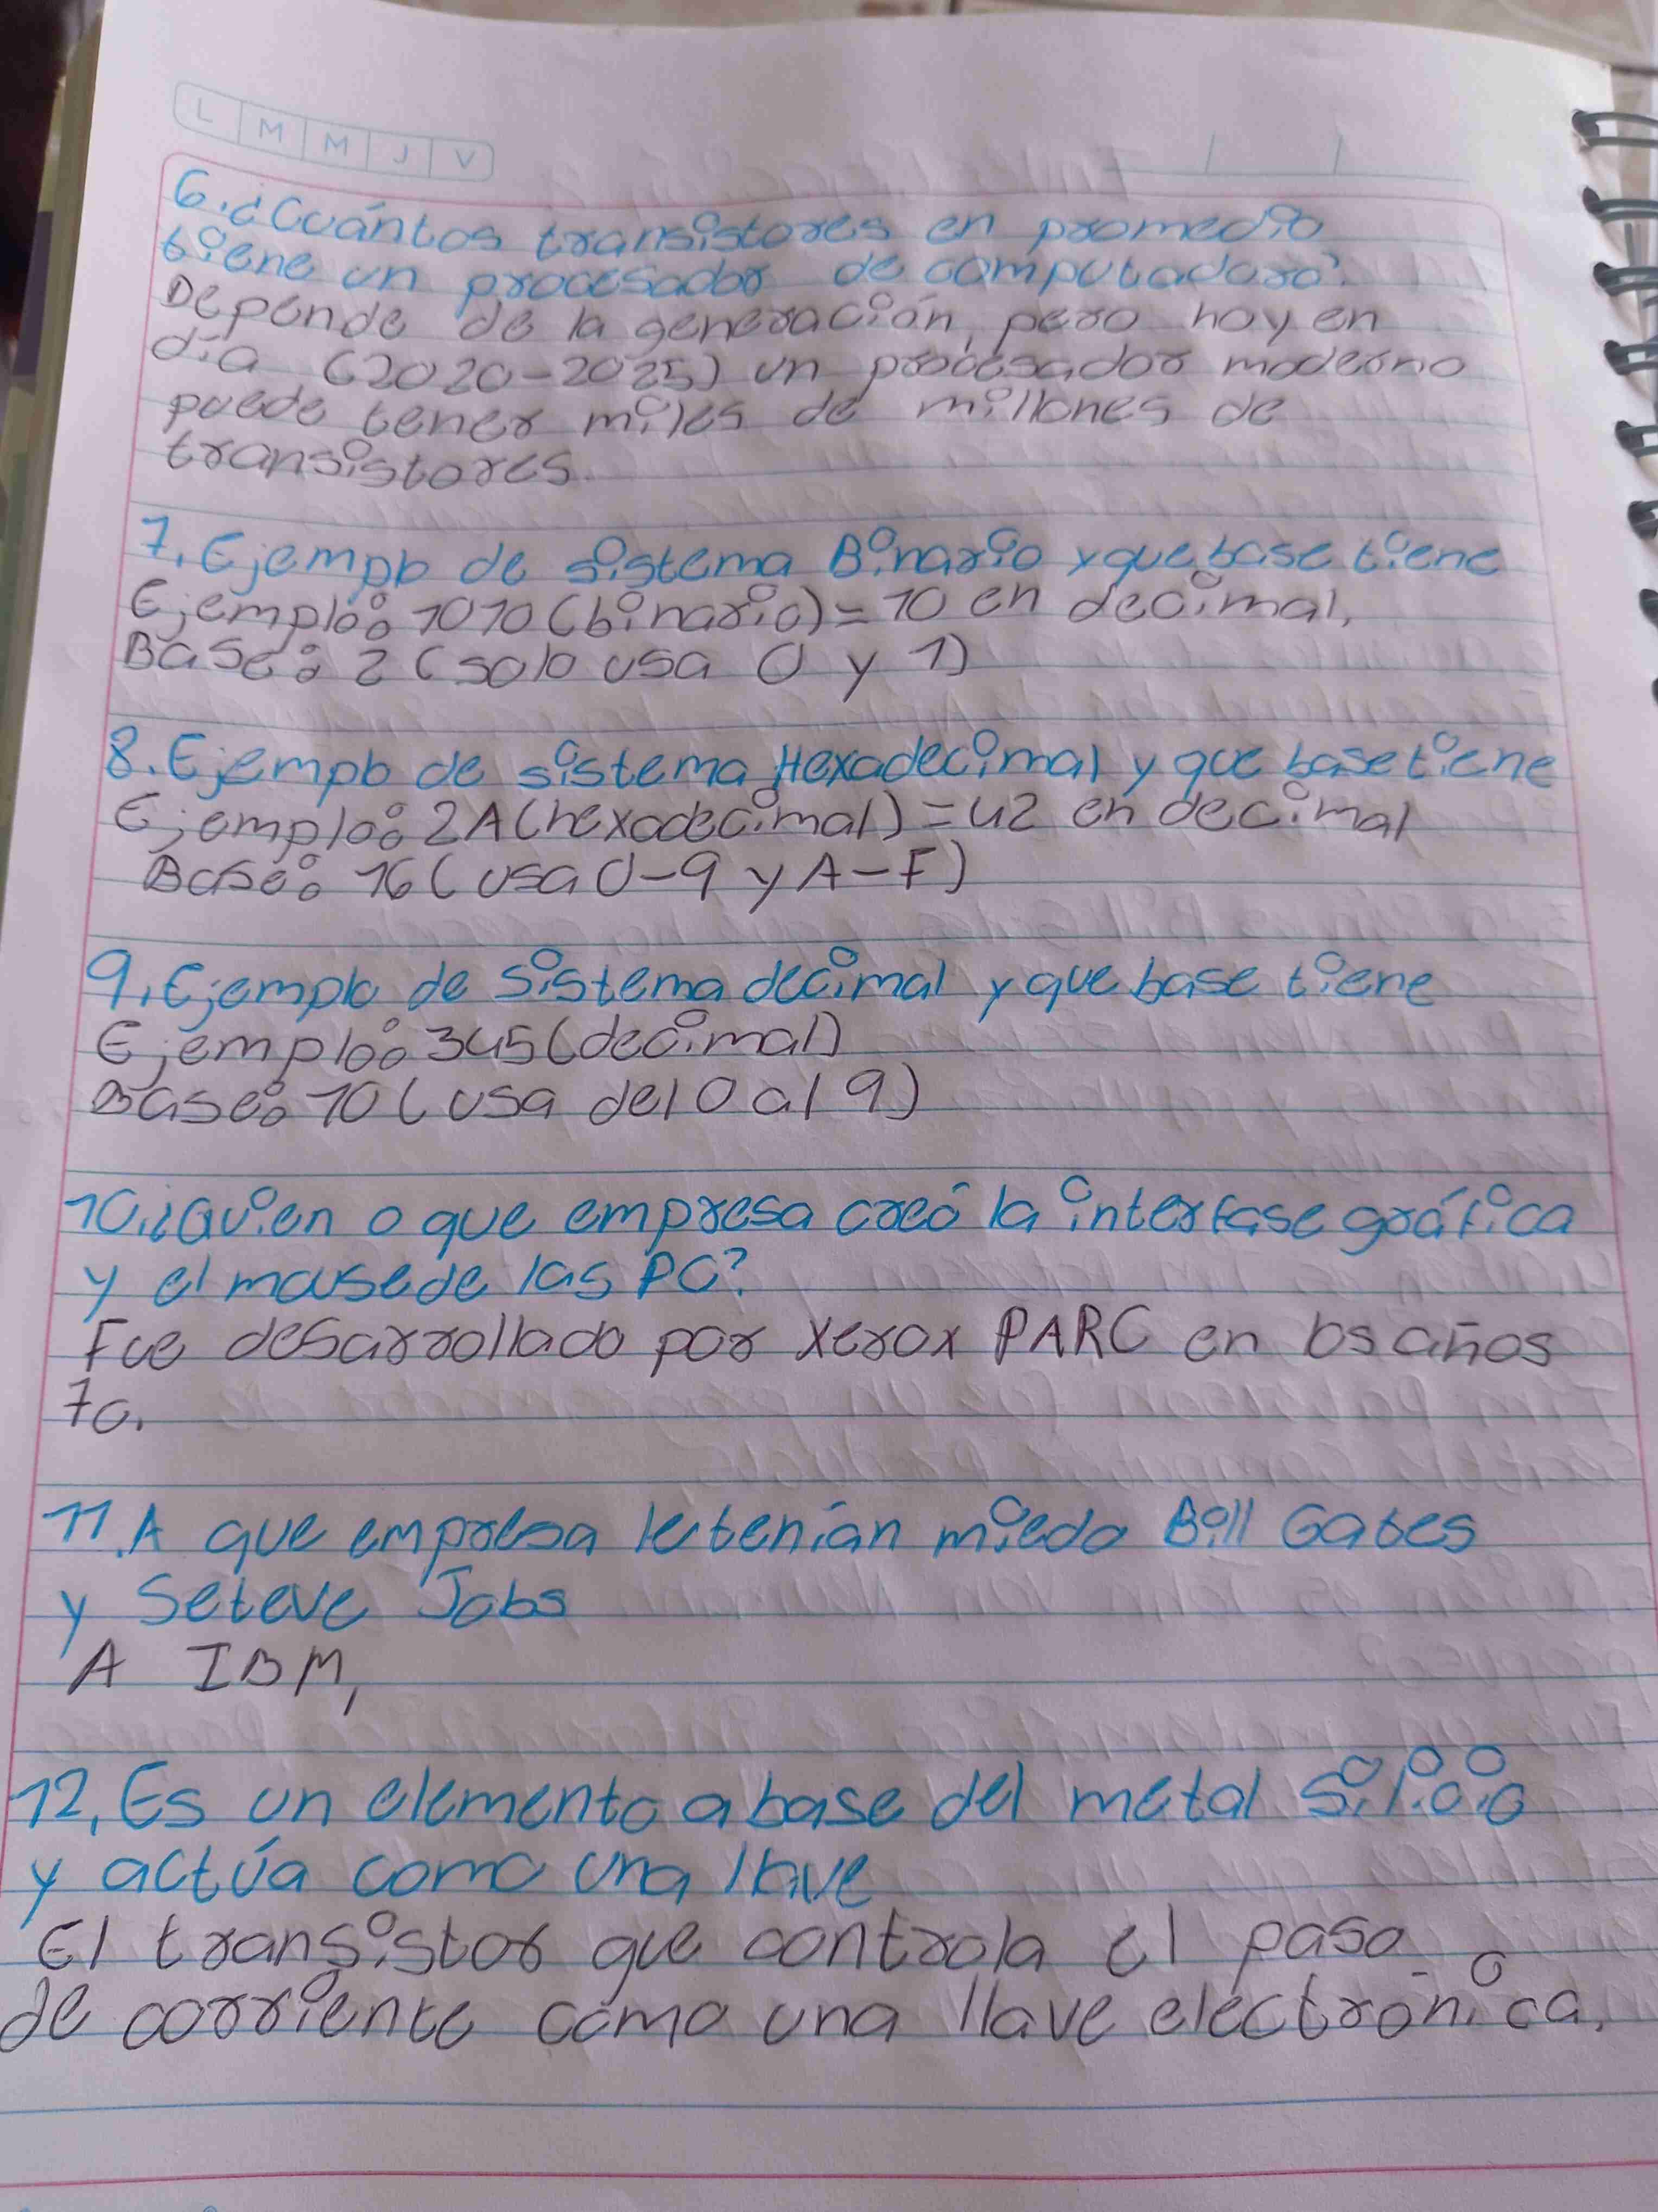 L M M J V
6. ¿Cuántos transistores en promedio
tiene un procesador de computadora?
Depende de la generación, pero hoy en
día (2020-2025) un procesador moderno
puede tener miles de millones de
transistores.
7. Ejemplo de sistema Binario y que base tiene
Ejemplo: 1010 (binario) = 10 en decimal,
Base: 2 (solo usa 0 y 1)
8. Ejemplo de sistema Hexadecimal y que base tiene
Ejemplo: 2A (hexadecimal) = 42 en decimal
Base: 16 (usa 0-9 y A-F)
9. Ejemplo de sistema decimal y que base tiene
Ejemplo: 345 (decimal)
Base: 10 (usa del 0 al 9)
10. ¿Quien o que empresa creó la interfase gráfica
y el mouse de las PC?
Fue desarrollado por Xerox PARC en los años
70.
11. A que empresa le tenían miedo Bill Gates
y Seteve Jobs
A IBM,
12. Es un elemento a base del metal Silicio
y actúa como una llave
El transistor que controla el paso
de corriente como una llave electrónica.